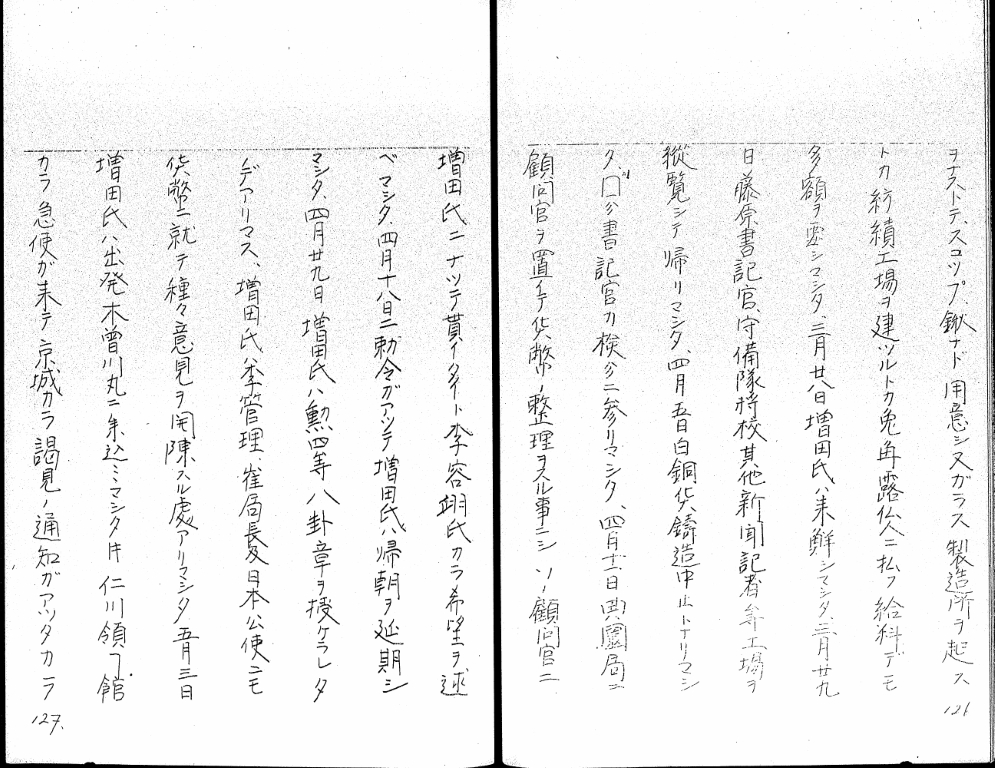 ヲナストテスコツプ、鍬ナド用意シ又ガラス製造所ヲ起ス
トカ紡績工場ヲ建ツルトカ兎角露仏人ニ払フ給料デモ
多額ヲ要シマシタ、三月廿八日増田氏ハ来鮮シマシタ、三月廿九
日藤原書記官、守備隊将校其他新聞記者等工場ヲ
縦覧シテ帰リマシタ、四月五日白銅貨鋳造中止トナリマシ
タ、書記官カ検分ニ参リマシタ、四月十一日典圜局ニ
顧問官ヲ置イテ貨幣ノ整理ヲスル事ニシソノ顧問官ニ
126
増田氏ニナツテ貰イタイト李容翊氏カラ希望ヲ述
ベマシタ、四月十八日ニ勅令ガアツテ増田氏ハ帰朝ヲ延期シ
マシタ、四月廿九日増田氏ハ勲四等八卦章ヲ授ケラレタ
デアリマス、増田氏李管理崔局長及日本公使ニモ
貨幣ニ就テ種々意見ヲ開陳スル處アリマシタ五月三日
増田氏ハ出発木曽川丸ニ乗込ミマシタ所仁川領事館
カラ急使ガ来テ京城カラ謁見ノ通知ガアツタカラ
127.